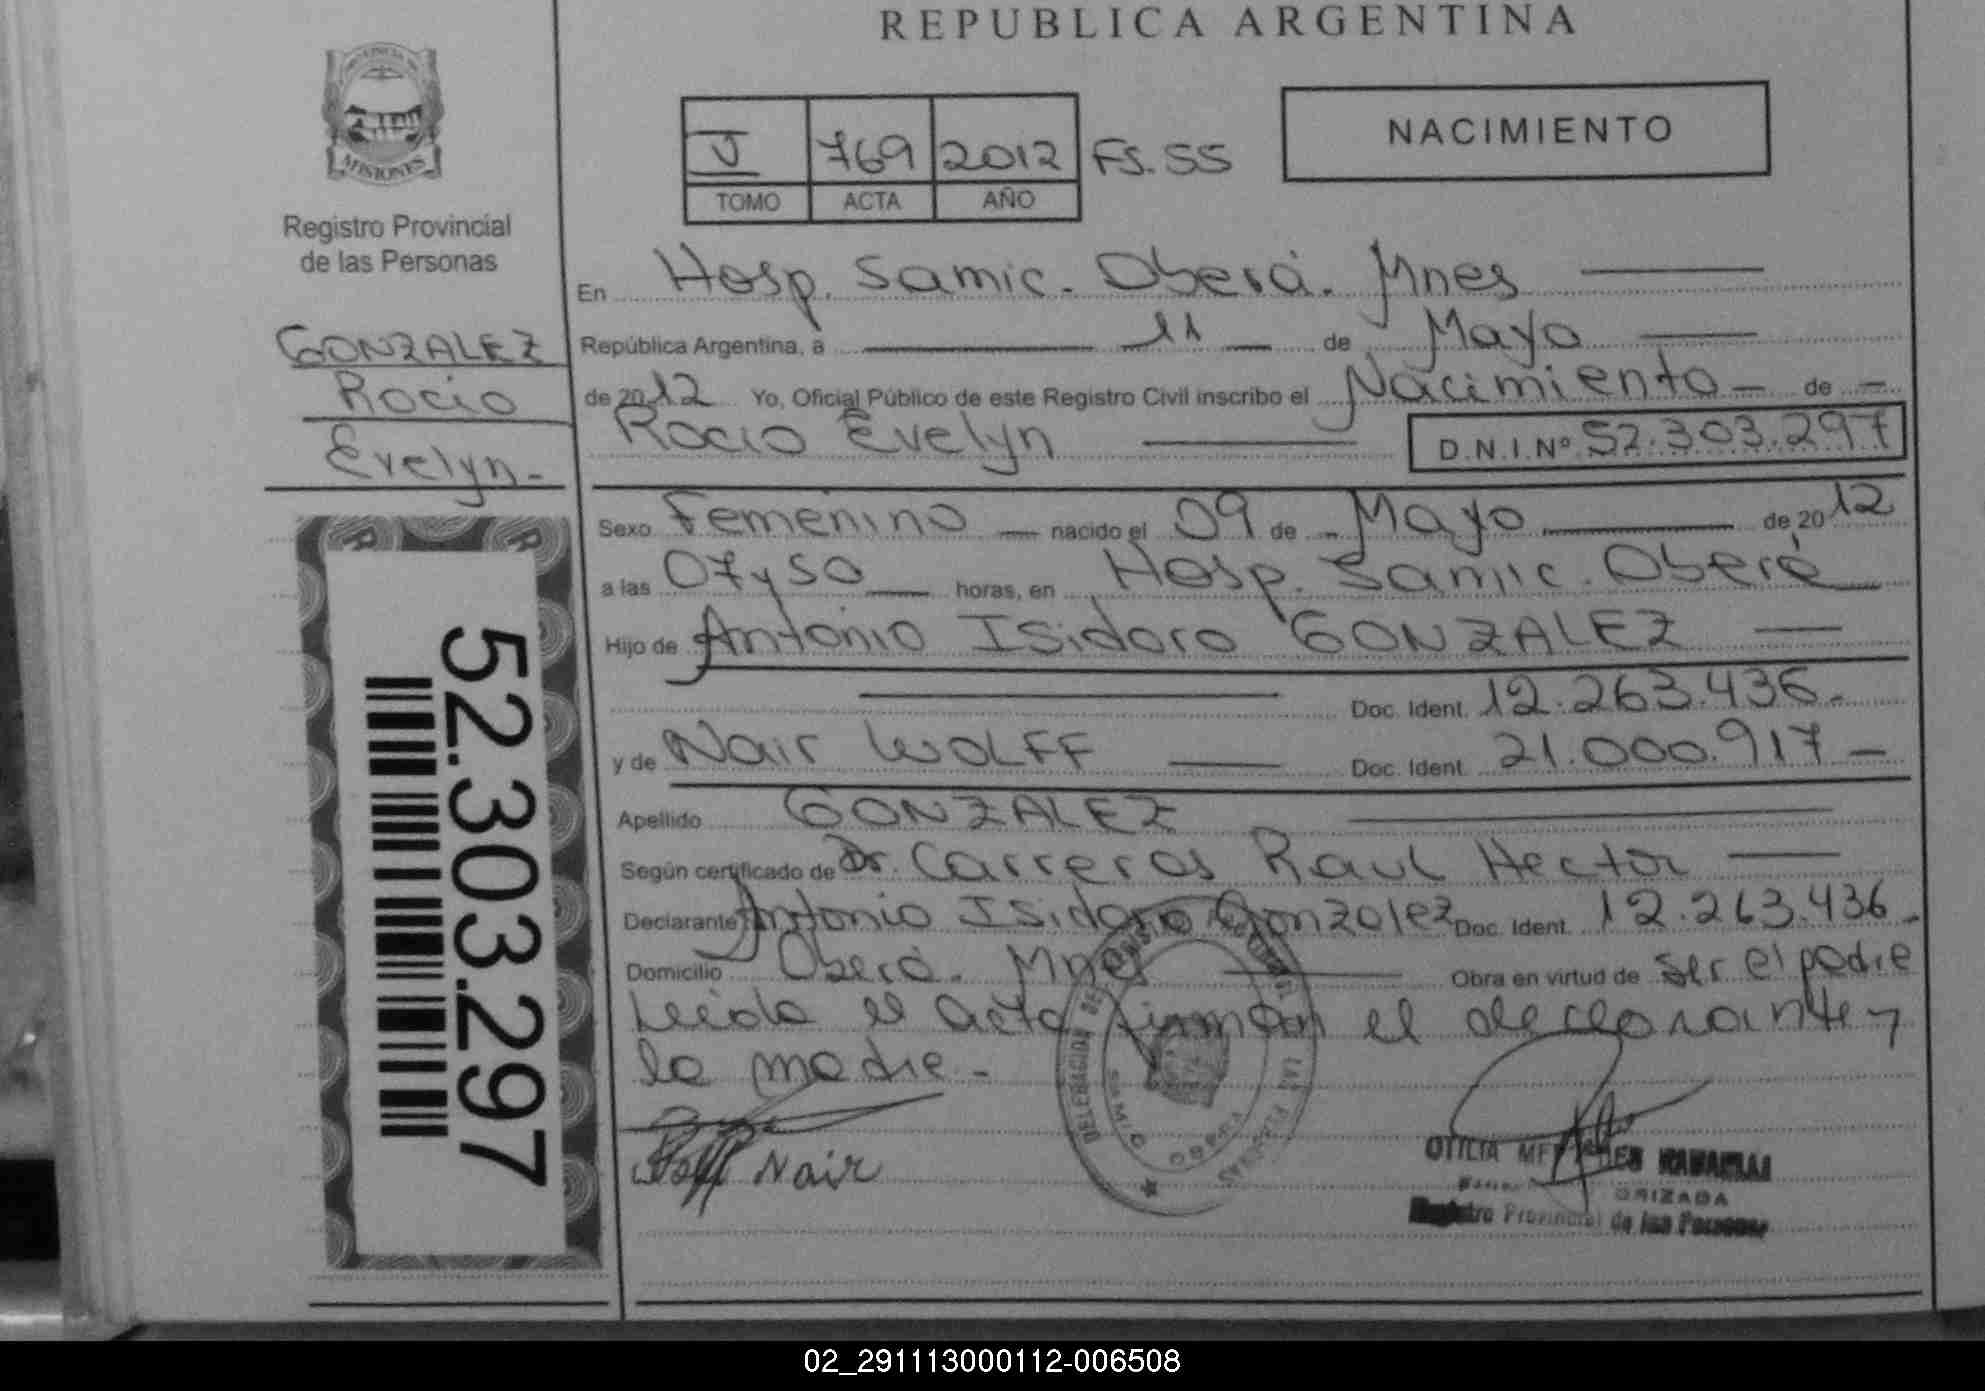 REPUBLICA ARGENTINA
MISIONES
Registro Provincial
de las Personas
GONZALEZ
Rocio
Evelyn.-
52.303.297
769 2012 FS. 55
TOMO ACTA AÑO
NACIMIENTO
En Hosp. Samic. Oberá. Mnes
República Argentina, a 11 de Mayo
de 2012 Yo, Oficial Público de este Registro Civil inscribo el Nacimiento de
Rocio Evelyn D.N.I.Nº 52.303.297
Sexo Femenino nacido el 09 de Mayo de 2012
a las 07 y 50 horas, en Hosp. Samic. Oberá
Hijo de Antonio Isidoro GONZALEZ
Doc. Ident. 12.263.436.-
y de Nair WOLFF Doc. Ident. 21.000.917 -
Apellido GONZALEZ
Según certificado de Dr. Carreras Raul Hector
Declarante Antonio Isidoro Gonzalez Doc. Ident. 12.263.436.
Domicilio Oberá. Mnes Obra en virtud de ser el padre
Leída el acta firman el declarante y
la madre.-
Wolff Nair
DELEGACION
SAMIC
OTILIA
Registro Provincial de las Personas
02_291113000112-006508